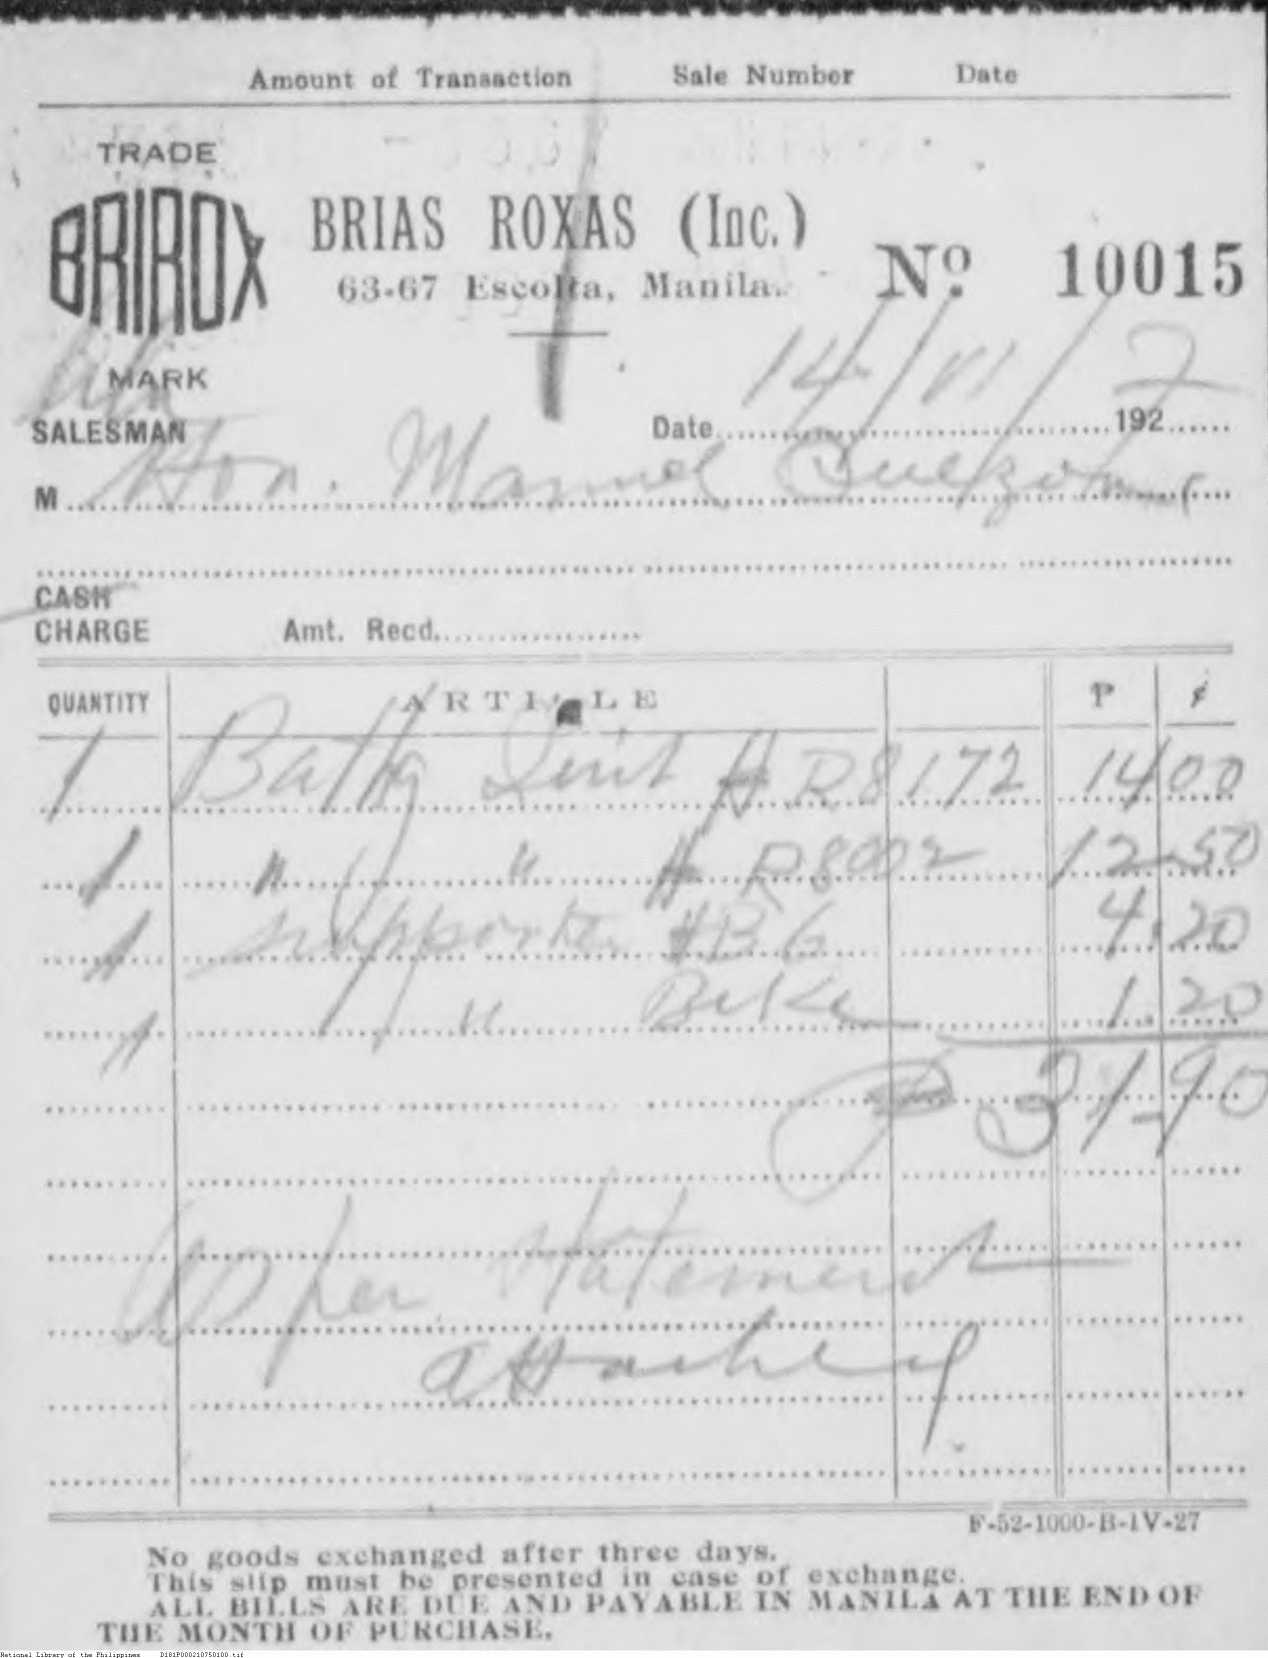 Amount of Transaction Sale Number Date
TRADE
BRIROX
MARK
BRIAS ROXAS (Inc.)
63-67 Escolta, Manila.
No. 10015
SALESMAN
Date 14/VI/ 192 7
M Hon. Manuel Quezon
CASH
CHARGE Amt. Recd.
QUANTITY ARTICLE P ¢
1 Suit # R8172 14 00
1 " " # R8002 12 50
1 supporter #B6 4.20
1 " Bike 1.20
P 31.90
per Statement
attached
F-52-1000-B-IV-27
No goods exchanged after three days.
This slip must be presented in case of exchange.
ALL BILLS ARE DUE AND PAYABLE IN MANILA AT THE END OF
THE MONTH OF PURCHASE.
National Library of the Philippines D181P000210750100.tif